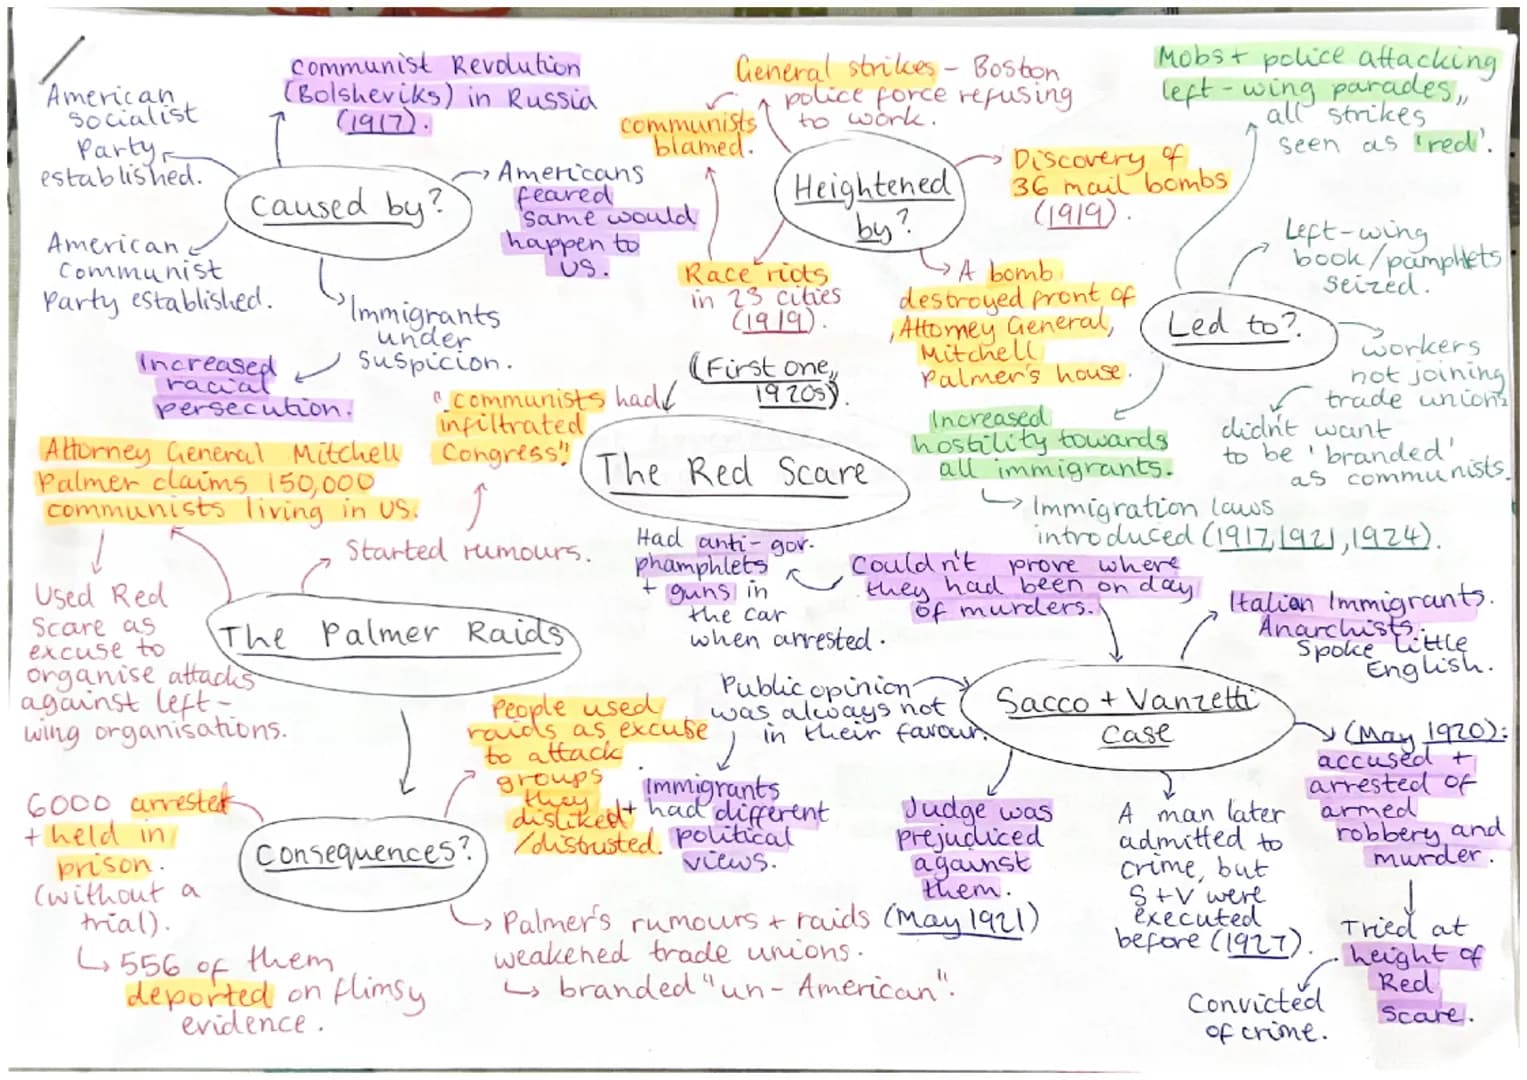 American
socialist
Party
established.
Communist Revolution
(Bolsheviks) in Russia
(1917).
Caused by?
Americans
feared
same would
happen to
US.
American
Communist
Party established.
Immigrants
under
suspicion.
Increased
racial
persecution.
General strikes - Boston
police force refusing
to work.
communists
blamed.
Heightened
by?
Discovery of
36 mail bombs
(1919).
Race riots
in 23 cities
(1919).
A bomb
destroyed front of
Attorney General,
Mitchell
Palmer's house.
Mobs + police attacking
left-wing parades,,
all strikes
seen as 'red'.
Left-wing
book/pamphlets
seized.
Led to?
workers
not joining
trade unions
didn't want
to be 'branded'
as communists.
Increased
hostility towards
all immigrants.
Immigration laws
introduced (1917, 1921, 1924).
(First one,,
1920s).
The Red Scare
"communists had
infiltrated
Congress"!
Attorney General Mitchell
Palmer claims 150,000
communists living in US.
Started rumours.
Used Red
Scare as
excuse to
organise attacks
against left-
wing organisations.
The Palmer Raids
Had anti-gov.
phamphlets
+ guns in
the car
when arrested.
Couldn't prove where
they had been on day
of murders.
Italian Immigrants.
Anarchists.
Spoke little
English.
Public opinion
was always not
in their favour.
Sacco + Vanzetti
case
Immigrants
+ had different
political
views.
Judge was
prejudiced
against
them.
(May 1921)
A man later
admitted to
crime, but
S + V were
executed
before (1927).
(May 1920):
accused +
arrested of
armed
robbery and
murder.
Tried at
height of
Red
Scare.
Convicted
of crime.
Consequences?
People used
raids as excuse
to attack
groups
they
disliked
/distrusted.
6000 arrested
+ held in
prison.
(without a
trial).
556 of them
deported on flimsy
evidence.
Palmer's rumours + raids
weakened trade unions.
branded "un-American".